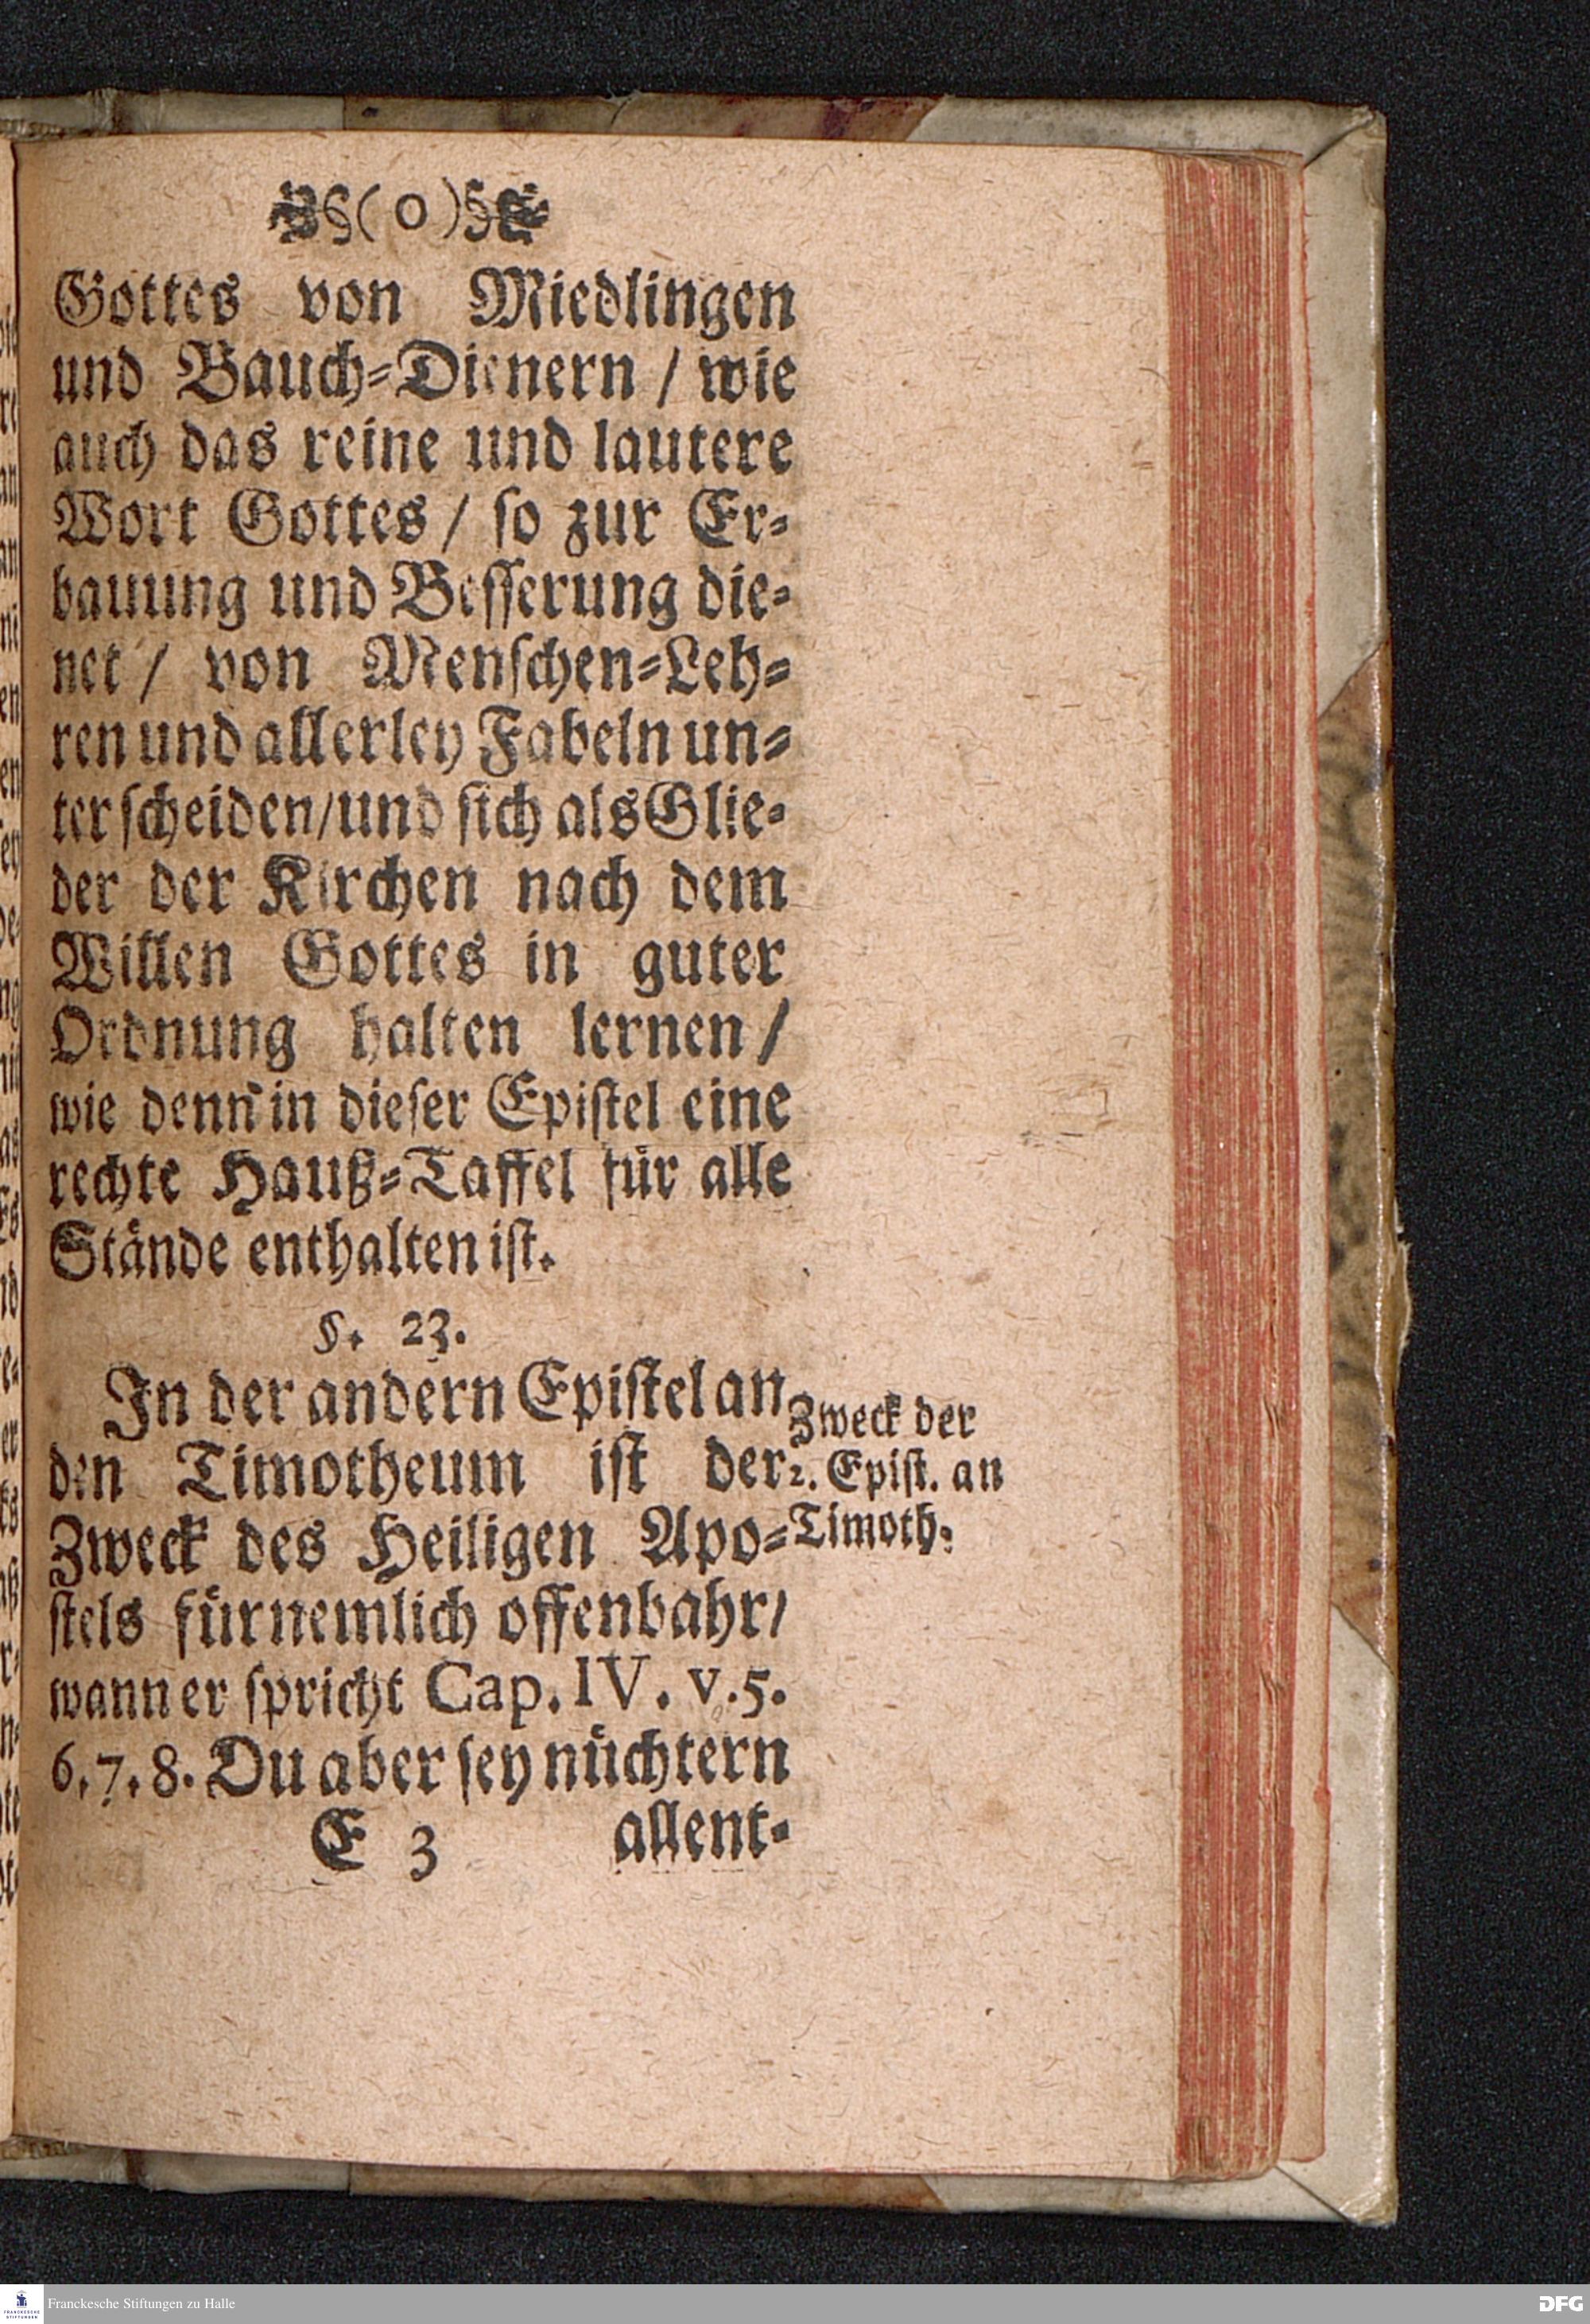 §( 0 )§
Gottes von Miedlingen
und Bauch=Dienern / wie
auch das reine und lautere
Wort Gottes / so zur Er=
bauung und Besserung die=
net / von Menschen=Leh=
ren und allerley Fabeln un=
terscheiden/und sich als Glie=
der der Kirchen nach dem
Willen Gottes in guter
Ordnung halten lernen /
wie denn in dieser Epistel eine
rechte Hauß=Taffel für alle
Stände enthalten ist.
§. 23.
In der andern Epistel an
den Timotheum ist der
Zweck des Heiligen Apo=
stels fürnemlich offenbahr/
wann er spricht Cap. IV. v. 5.
6. 7. 8. Du aber sey nüchtern
E 3 allent=
Zweck der
2. Epist. an
Timoth.
Franckesche Stiftungen zu Halle
DFG